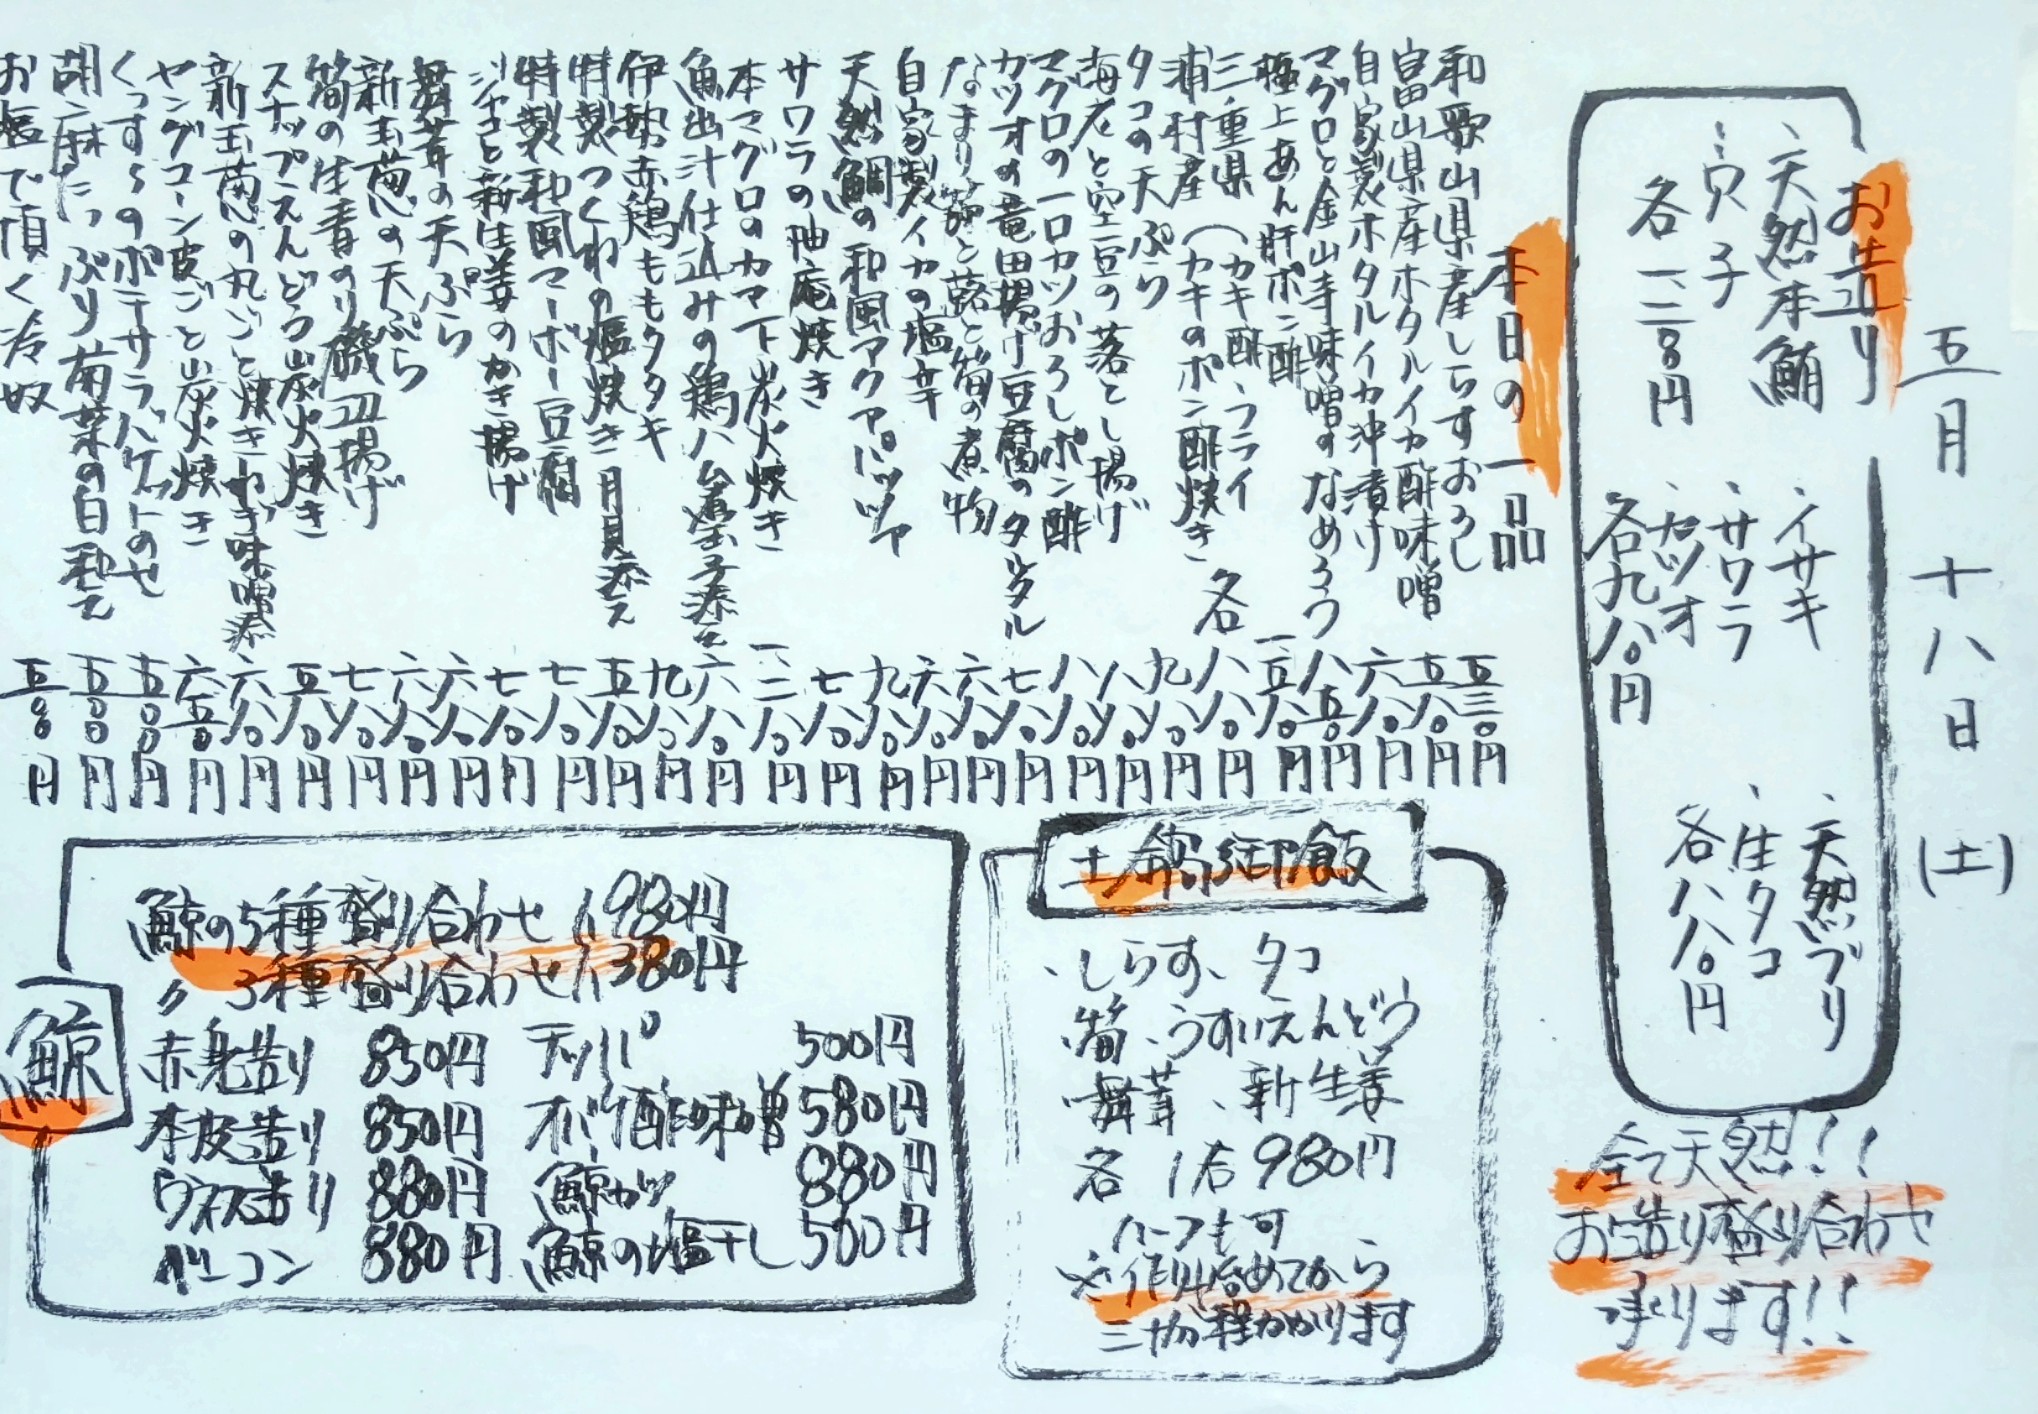 五月十八日(土)
お造り
、天然本鮪
、穴子
各一二八〇円
、イサキ
、サワラ
、カツオ
各九八〇円
、天然ブリ
、生タコ
各八八〇円
全て天然!!
お造り盛り合わせ
承ります!!
本日の一品
和歌山県産しらすおろし 五三〇円
富山県産ホタルイカ酢味噌 五八〇円
自家製ホタルイカ沖漬け 六八〇円
マグロと金山寺味噌のなめろう 八五〇円
極上あん肝ポン酢 一、五八〇円
三重県(カキ酢、フライ
浦村産(カキのポン酢焼き 各 八八〇円
タコの天ぷら 九八〇円
海老と空豆の落とし揚げ 八八〇円
マグロの一口カツおろしポン酢 八八〇円
カツオの竜田揚げ豆腐のタルタル 七八〇円
なまり節と蕗と筍の煮物 六八〇円
自家製イカの塩辛 六八〇円
天然鯛の和風アクアパッツァ 九八〇円
サワラの柚庵焼き 七八〇円
本マグロのカマ下炭火焼き 一、二八〇円
魚出汁仕込みの鶏ハム煮玉子添え 六八〇円
伊勢赤鶏ももタタキ 九八〇円
特製つくねの塩焼き月見添え 五八〇円
特製和風マーボー豆腐 七八〇円
ジャコと新生姜のかき揚げ 七八〇円
舞茸の天ぷら 六八〇円
新玉葱の天ぷら 六八〇円
筍の生青のり磯辺揚げ 七八〇円
スナップえんどう炭火焼き 五八〇円
新玉葱の丸ごと焼きねぎ味噌添 六八〇円
ヤングコーン皮ごと炭火焼き 六五〇円
くっすらのポテサラバゲットのせ 五〇〇円
胡麻たっぷり菊菜の白和え 五〇〇円
お塩で頂く冷奴 五〇〇円
土鍋御飯
、しらす、タコ
、筍、うすいえんどう
、舞茸、新生姜
各 1合 980円
ハーフも可
※作り始めてから
三十分程かかります
鯨
鯨の5種盛り合わせ 1980円
〃 3種盛り合わせ 1380円
赤身造り 850円
本皮造り 850円
ウネス造り 880円
ベーコン 880円
テッパ 500円
オバケ酢味噌 580円
鯨カツ 880円
鯨の塩干し 500円